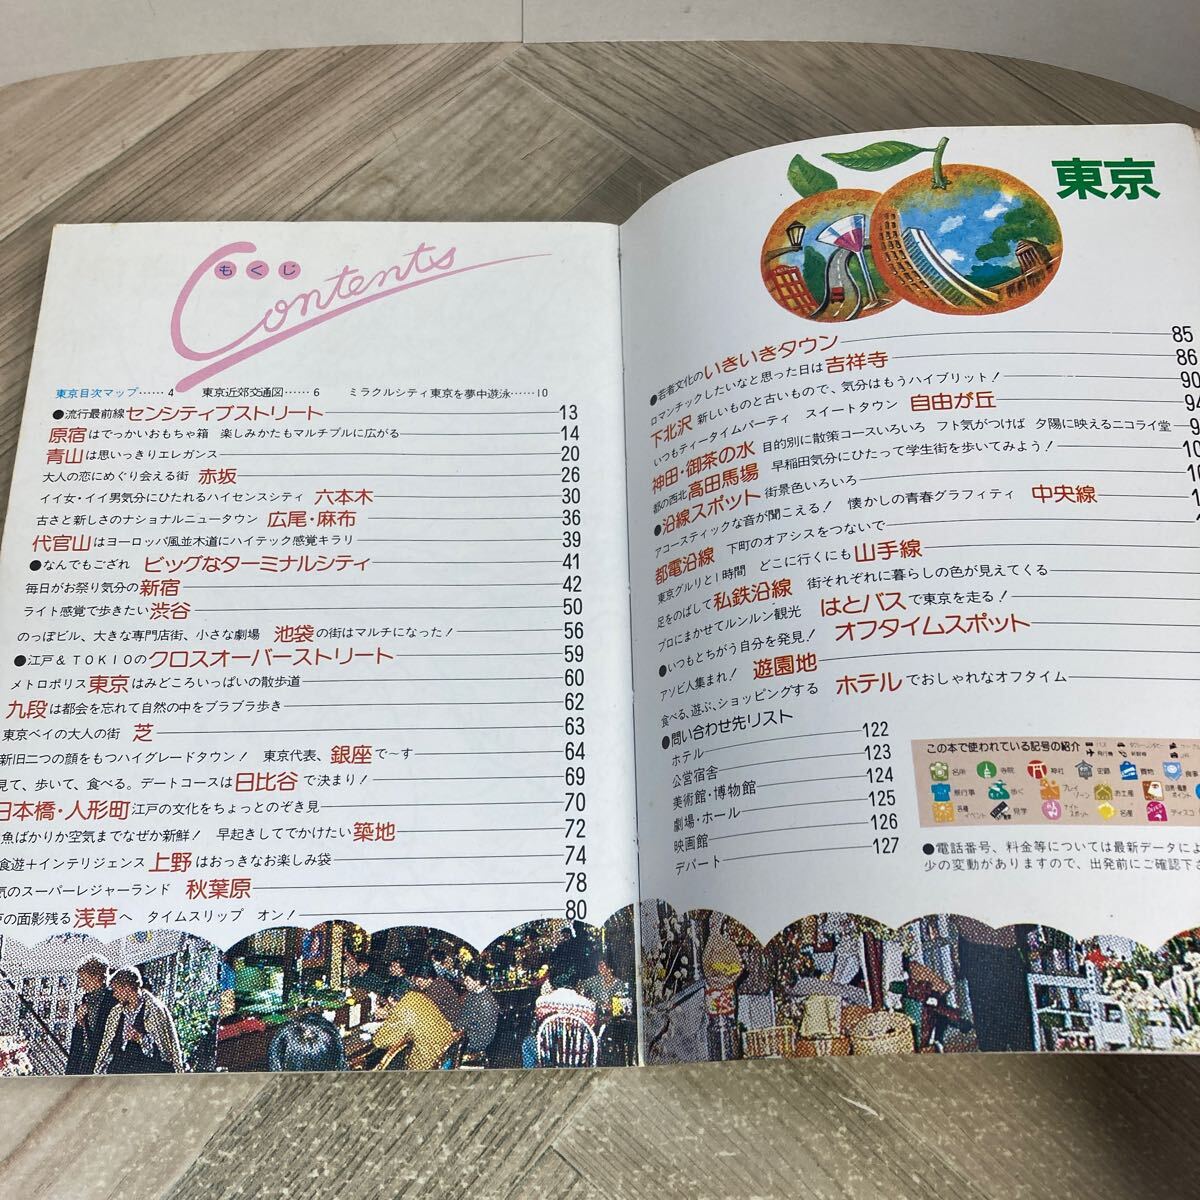 もくじ
Contents
東京目次マップ……4　東京近郊交通図……6　ミラクルシティ東京を夢中遊泳……10
●流行最前線センシティブストリート 13
原宿はでっかいおもちゃ箱　楽しみかたもマルチプルに広がる 14
青山は思いっきりエレガンス 20
大人の恋にめぐり会える街　赤坂 26
イイ女・イイ男気分にひたれるハイセンスシティ　六本木 30
古さと新しさのナショナルニュータウン　広尾・麻布 36
代官山はヨーロッパ風並木道にハイテック感覚キラリ 39
●なんでもござれ　ビッグなターミナルシティ 41
毎日がお祭り気分の新宿 42
ライト感覚で歩きたい渋谷 50
のっぽビル、大きな専門店街、小さな劇場　池袋の街はマルチになった! 56
●江戸&TOKIOのクロスオーバーストリート 59
メトロポリス東京はみどころいっぱいの散歩道 60
九段は都会を忘れて自然の中をブラブラ歩き 62
東京ベイの大人の街　芝 63
新旧二つの顔をもつハイグレードタウン!　東京代表、銀座で〜す 64
見て、歩いて、食べる。デートコースは日比谷で決まり! 69
日本橋・人形町江戸の文化をちょっとのぞき見 70
魚ばかりか空気までなぜか新鮮!　早起きしてでかけたい築地 72
食遊+インテリジェンス上野はおっきなお楽しみ袋 74
気のスーパーレジャーランド　秋葉原 78
の面影残る浅草へ　タイムスリップ　オン! 80
東京
●若者文化のいきいきタウン 85
ロマンチックしたいなと思った日は吉祥寺 86
下北沢　新しいものと古いもので、気分はもうハイブリット! 90
いつもティータイムパーティ　スイートタウン　自由が丘 94
神田・御茶の水　目的別に散策コースいろいろ　フト気がつけば　夕陽に映えるニコライ堂 9
都の西北高田馬場　早稲田気分にひたって学生街を歩いてみよう! 10
●沿線スポット　街景色いろいろ 10
アコースティックな音が聞こえる!　懐かしの青春グラフィティ　中央線 1
都電沿線　下町のオアシスをつないで
東京グルリと1時間　どこに行くにも　山手線
足をのばして私鉄沿線　街それぞれに暮らしの色が見えてくる
プロにまかせてルンルン観光　はとバスで東京を走る!
●いつもとちがう自分を発見!　オフタイムスポット
アソビ人集まれ!　遊園地
食べる、遊ぶ、ショッピングする　ホテルでおしゃれなオフタイム
●問い合わせ先リスト
ホテル 122
公営宿舎 123
美術館・博物館 124
劇場・ホール 125
映画館 126
デパート 127
この本で使われている記号の紹介
名所　寺院　神社　史跡　買物　食事
旅行事　歩く　プレイゾーン　お土産
各種イベント　見学　ナイトスポット　名産　ディスコ
●電話番号、料金等については最新データによ
少の変動がありますので、出発前にご確認下さ